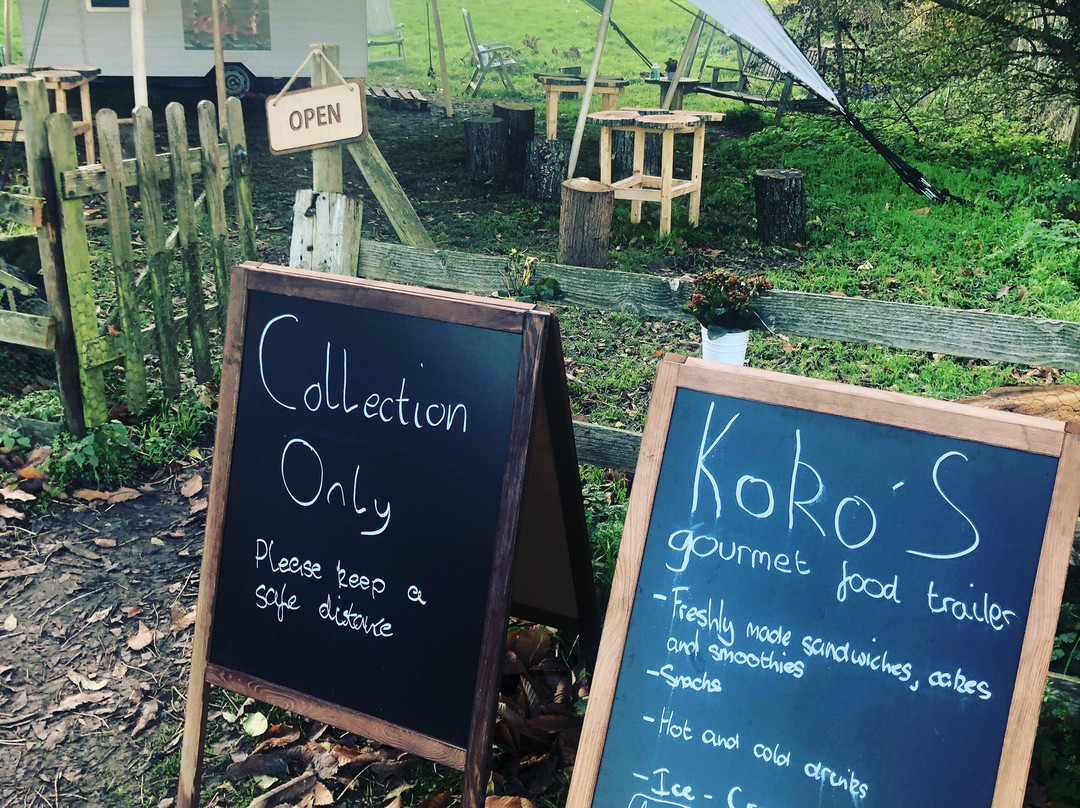 OPEN
Collection
Only
Please keep a
safe distance
Koko's
gourmet food trailer
- Freshly made sandwiches, cakes
and smoothies
- Snacks
- Hot and cold drinks
- Ice - C